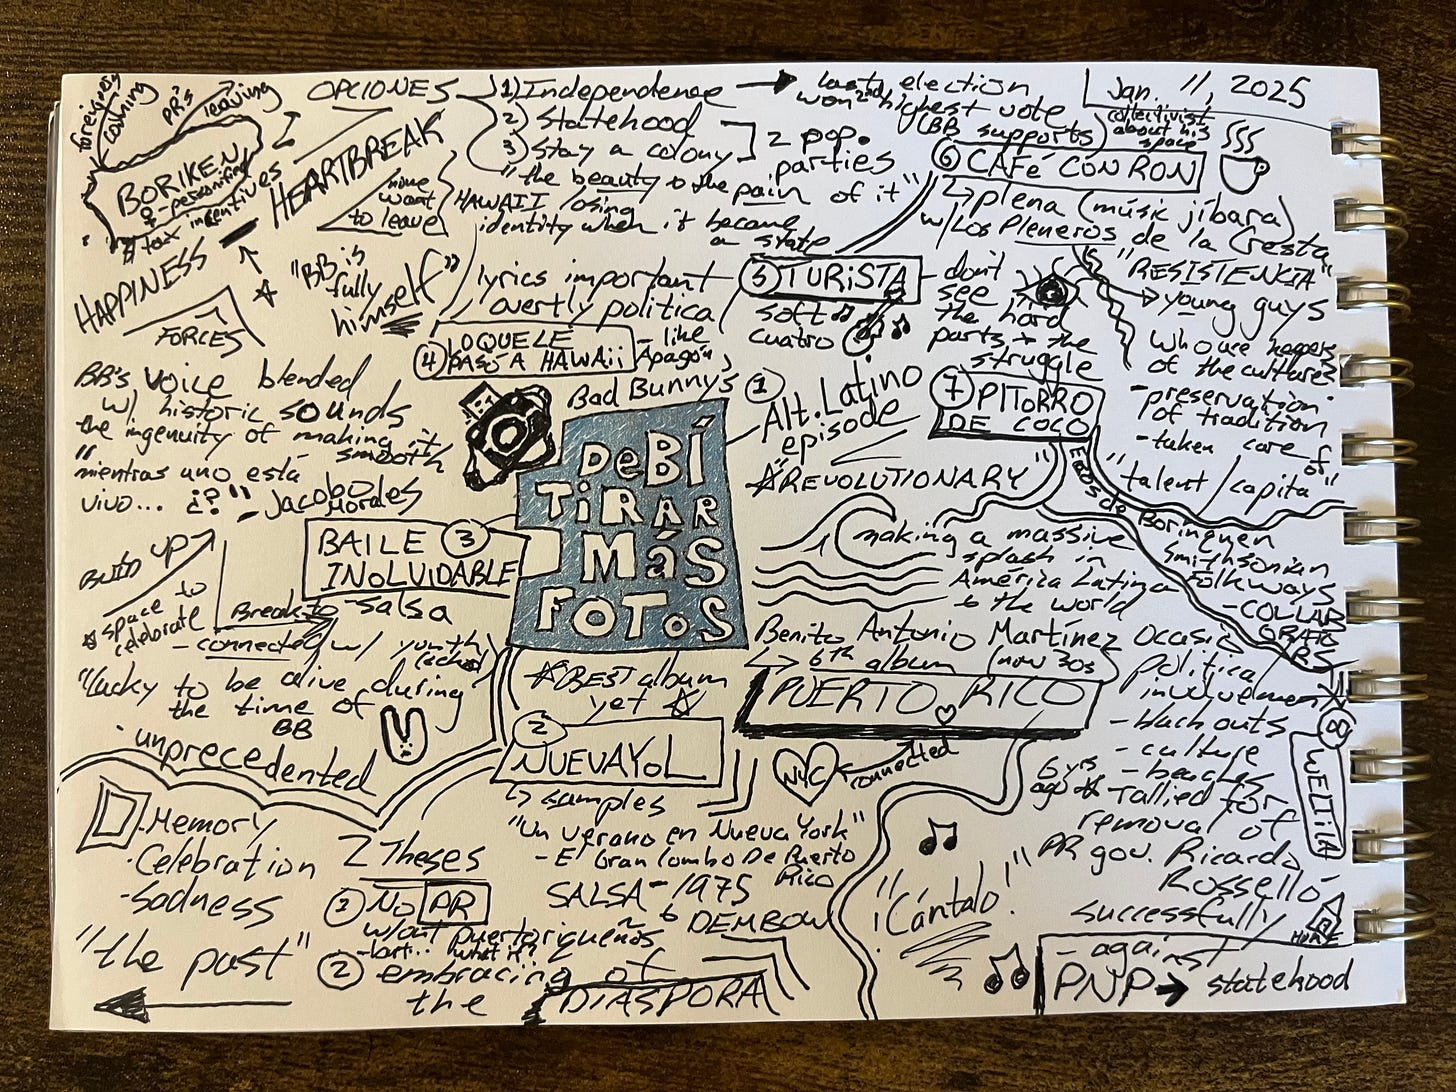 Jan. 11, 2025
foreigners
coming
PR's
leaving
BORIKEN
♀-personifing
☆ tax incentives
HEARTBREAK
HAPPINESS
FORCES
OPCIONES
1) Independence → last election
won 2nd highest vote
(BB supports)
2) statehood
3) stay a colony
2 pop.
parties
"the beauty & the pain of it"
none
want
to leave
HAWAII losing
identity when it became
a state
"BB is
fully
himself"
lyrics important
overtly political
4 LO QUE LE
PASÓ A HAWAii
- like
"Apagón"
5 TURiSTA
soft
cuatro
- don't
see
the hard
parts & the
struggle
collectivist
about his
space
6 CAFé CON RON
↳ plena (músic jíbara)
w/ Los Pleneros de la Cresta
"RESISTENCIA"
→ young guys
who are keepers
of the culture
- preservation
of tradition
- taken care of
"talent / capita"
7 PITORRO
DE COCO
Ecos de Borinquen
Smithsonian
Folkways
- COLLAB
ORATO
RS
BB's voice blended
w/ historic sounds
the ingenuity of making it
smooth
"mientras uno está
vivo... ¿?"
- Jacobo
Morales
Bad Bunny's
DeBÍ
TiRAR
MáS
FOToS
1 Alt. Latino
episode
☆REVOLUTIONARY"
making a massive
splash in
América Latina
& the world
BAILE 3
INoLVIDABLE
- salsa
Build up
Break to
☆ space to
celebrate
- connected w/ youth
"lucky to be alive during
the time of
BB
· unprecedented
☆BEST album
yet ☆
Benito Antonio Martínez Ocasio
↳ 6th album (now 30s)
PUERTO RICO
NYC
connected
2
NUEVAYoL
↳ samples
"Un Verano en Nueva York"
- El Gran Combo De Puerto
Rico
SALSA - 1975
to DEMBOW
political
involvement
- blackouts
- culture
- beaches
6 yrs
ago ☆ rallied for
removal of
PR gov. Ricardo
Rosselló -
successfully
- against
PNP → statehood
8 WELTiTA
HOME
"¡Cántalo!"
· Memory
· Celebration
- sadness
"the past"
2 Theses
1 No PR
w/out puertorriqueños
- but.. what if?
2 embracing of
the DIASPORA